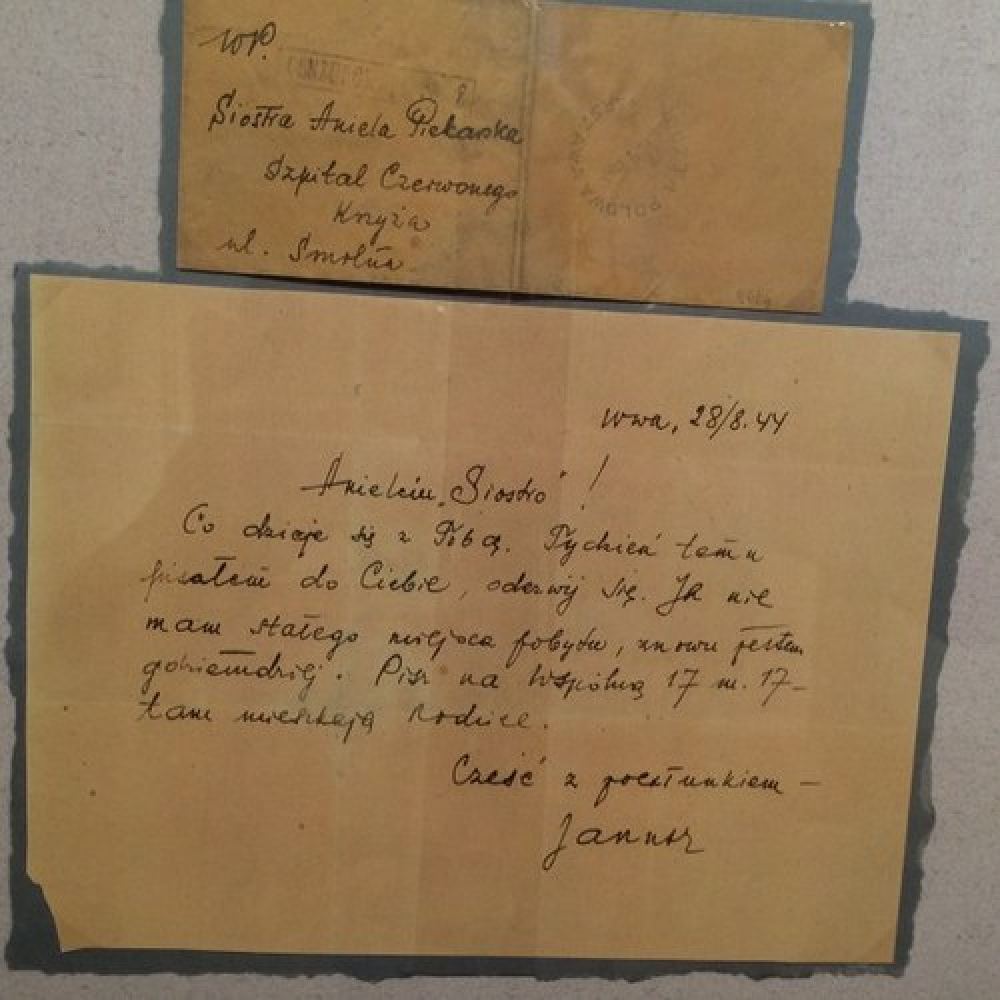 WP.
Siostra Aniela Piekarska
Szpital Czerwonego
Krzyża
ul. Smolna
POCZTA POLOWA
Wwa, 28/8.44
"Siostro" !
Co dzieje się z Tobą. Tydzień temu
pisałem do Ciebie, odezwij się. Ja nie
mam stałego miejsca pobytu, znowu jestem
gdzieindziej. Pisz na Wspólną 17 m. 17 –
tam mieszkają rodzice.
Cześć z pocałunkiem –
Janusz